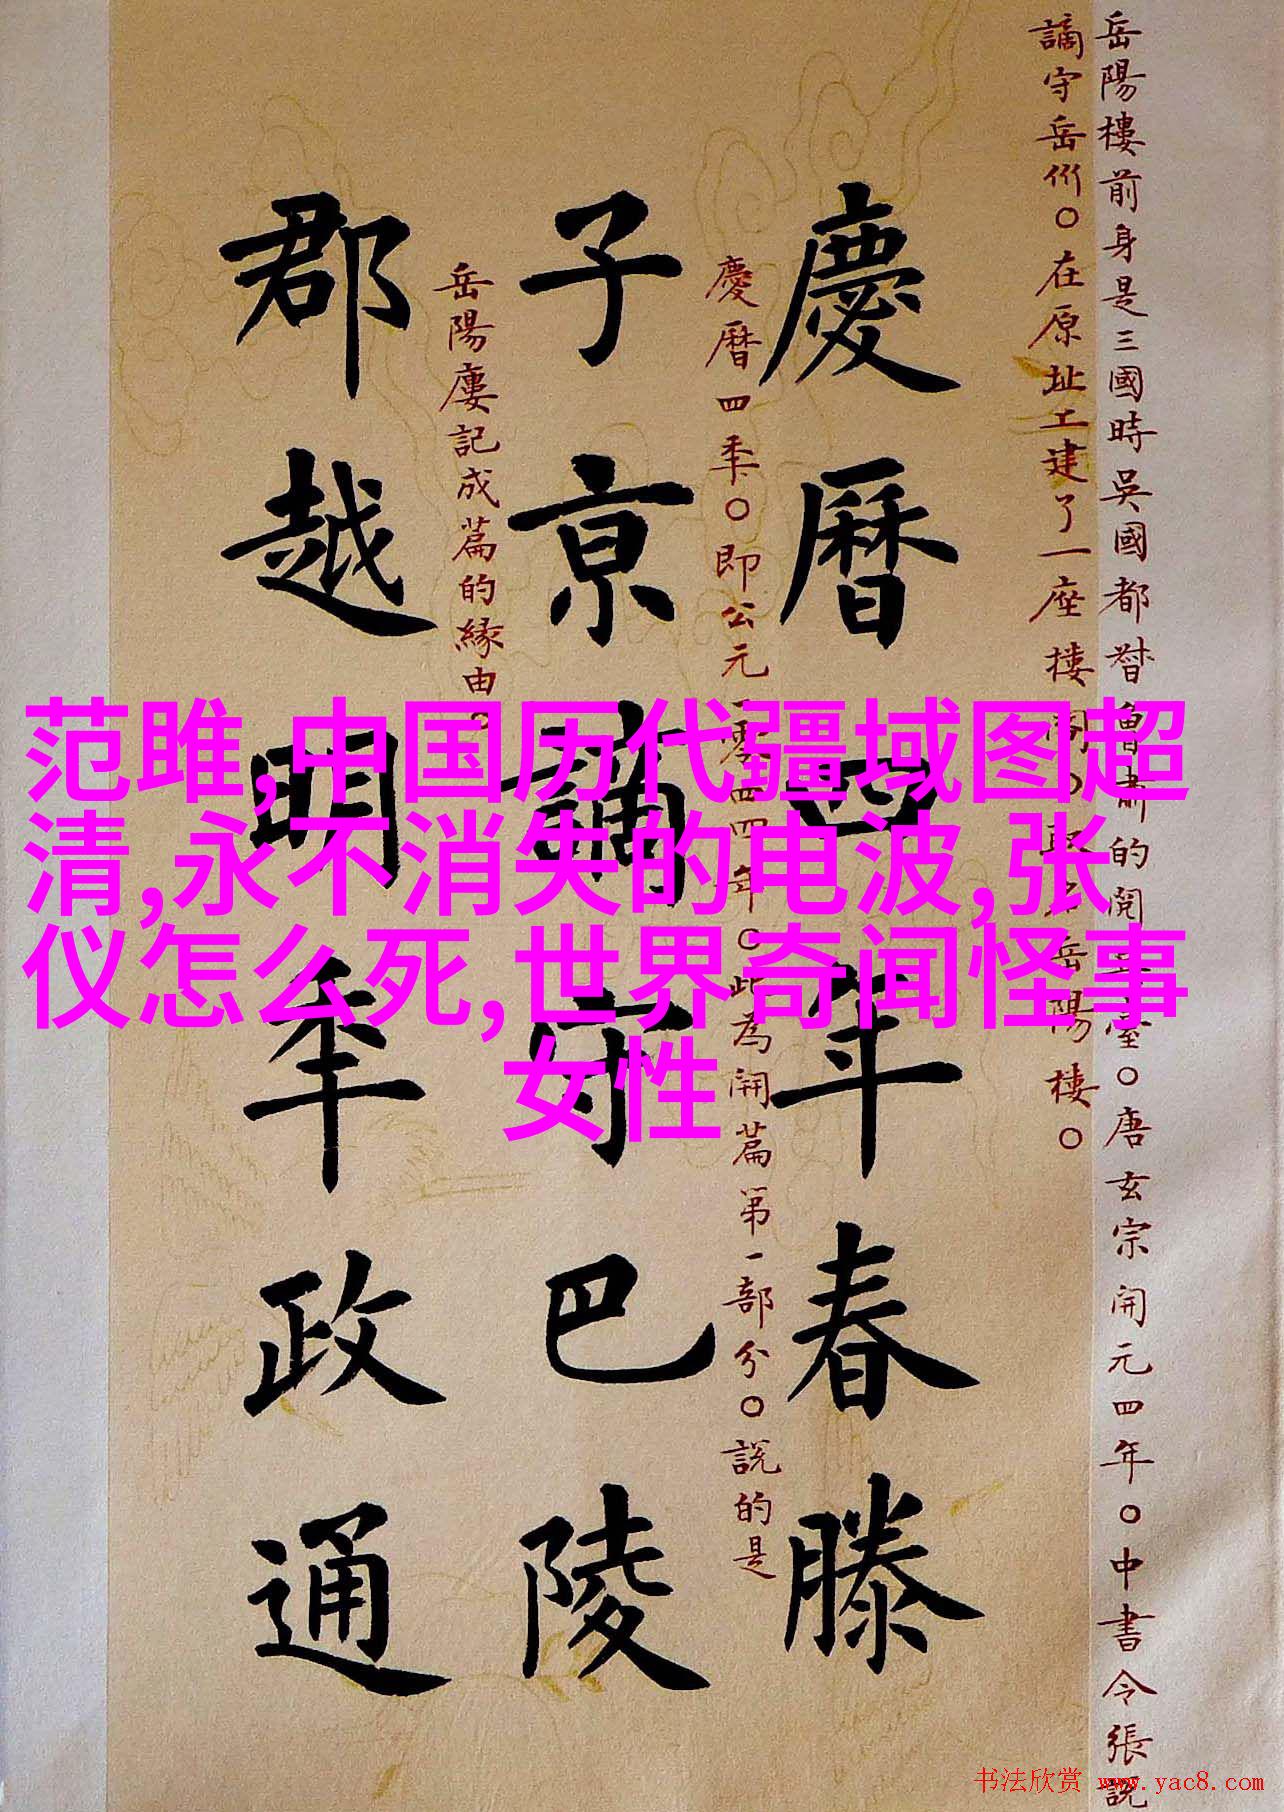 岳陽樓前身是三國時吳國都督魯肅的閱臺〇唐玄宗開元四年〇中書令張說
謫守岳州〇在原址工建了一座樓閣〇取名岳陽樓〇
慶曆四年春滕
慶曆四年〇即公元一零四四年〇此為開篇第一部分〇説的是
子京謫守巴陵
岳陽廔記成篇的緣由。
郡越明年政通
范雎,中国历代疆域图超
清,永不消失的电波,张
仪怎么死,世界奇闻怪事
女性
书法欣赏 www.yac8.com